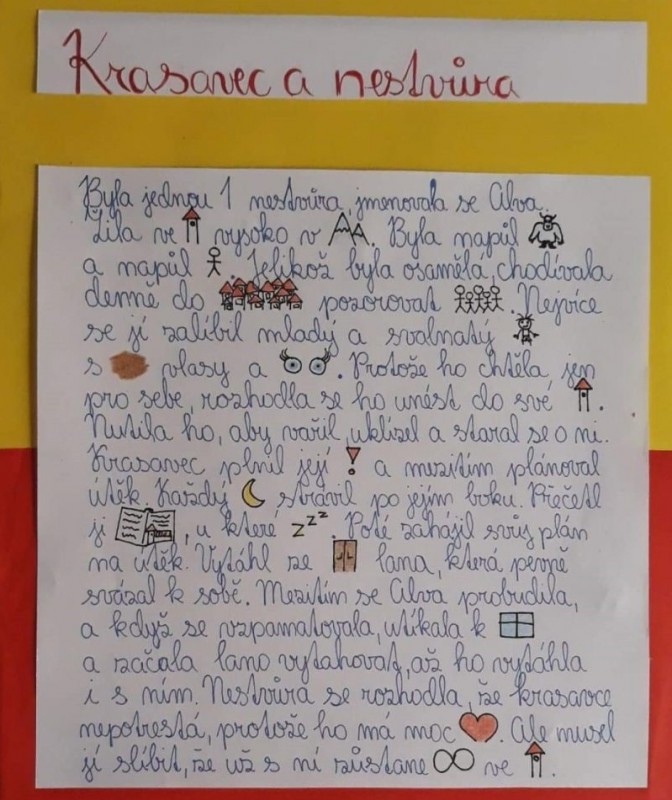 Krasavec a nestvůra
Byla jednou 1 nestvůra, jmenovala se Alva.
Žila ve vysoko v . Byla napůl
a napůl . Jelikož byla osamělá, chodívala
denně do pozorovat . Nejvíce
se jí zalíbil mladý a svalnatý
s vlasy a . Protože ho chtěla jen
pro sebe, rozhodla se ho unést do své .
Nutila ho, aby vařil, uklízel a staral se o ni.
Krasavec plnil její a mezitím plánoval
útěk. Každý strávil po jejím boku. Přečetl
jí , u které zzz . Poté zahájil svůj plán
na útěk. Vytáhl ze lana, která pevně
svázal k sobě. Mezitím se Alva probudila,
a když se vzpamatovala, utíkala k
a začala lano vytahovat, až ho vytáhla
i s ním. Nestvůra se rozhodla, že krasavce
nepotrestá, protože ho má moc . Ale musel
jí slíbit, že už s ní zůstane ∞ ve .